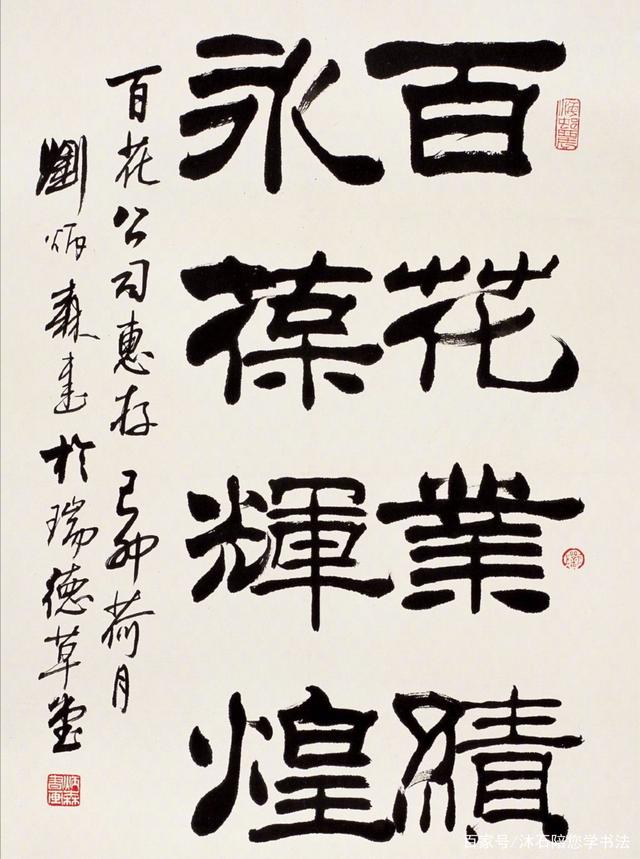 百花業績
永葆輝煌
百花公司惠存 己卯荷月
劉炳森書於瑞德草堂
炳森書画
百家号/沐石陪您学书法